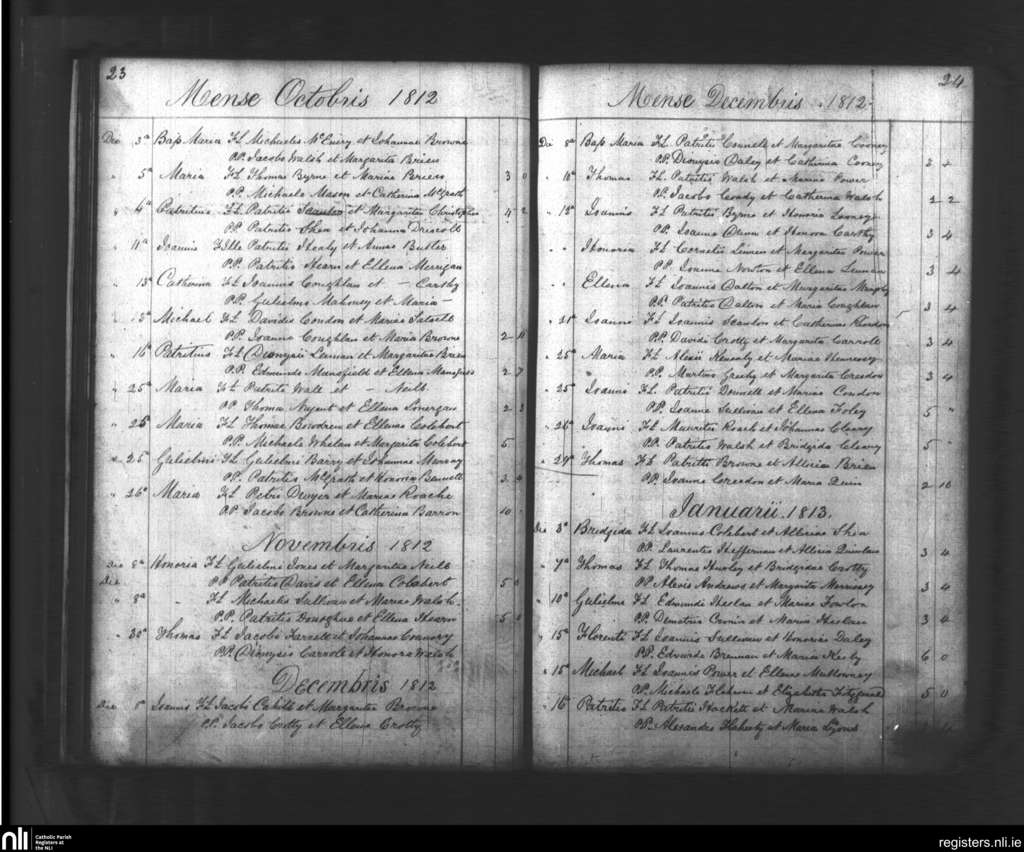 23
Mense Octobris 1812
Die 3ª Bap Maria FL Michaelis McEniry et Johannae Browne
PP. Jacobo Walsh et Margarita Brien
" 5ª Maria FL Thomae Byrne et Mariae Breen 3 0
PP. Michaele Mason et Catherina McGrath
" 4ª Patritius FL Patritii Scanlan et Margaritae Christopher 4 2
PP. Patritio Shea et Johanna Driscoll
" 11ª Joannis Filla Patritii Healy et Annae Butler
PP. Patritio Hearn et Ellena Merrigan
" 13ª Catherina FL Joannis Coughlan et — Carthy
PP. Gulielmo Mahoney et Maria —
" Michael FL Davidis Condon et Mariae
PP. Joanne Coughlan et Maria Browne
" 16ª Patritius FL Dionysii Leman et Margaritae Brien
PP. Edmundo Mansfield et Ellena Mansfield 2 7
" 25ª Maria FL Patritii Wall et — Neill
PP. Thoma Nugent et Ellena Lonergan 2 3
" 25ª Maria FL Thomae Bowdren et Ellenae Colebert
PP. Michaele Whelan et Margarita Colebert 5
" 25ª Gulielmi FL Gulielmi Barry et Johannae Murray
PP. Patritio McGrath et Honoria Bennett
" 26ª Maria FL Petri Dwyer et Mariae Roache
PP Jacobo Browne et Catherina Barron 10
Novembris 1812
Die 8ª Honoria FL Gulielmi Jones et Margaritae Neill
Die PP Patritio Davis et Ellena Colebert 5 0
" 8ª " FL Michaelis Sullivan et Mariae Walsh
PP. Patritio Donoghue et Ellena Hearn 5 0
" 30ª Thomas FL Jacobi Farrell et Johannae Connory
PP. Dionysio Carroll et Honora Walsh
Decembris 1812
Die 8ª Joannis FL Jacobi Cahill et Margaritae Browne
PP. Jacobo Crotty et Ellena Crotty
24
Mense Decembris 1812
Die 8ª Bap Maria FL Patritii Connell et Margaritae Cooney
PP. Dionysio Daley et Catherina Cooney
" 10ª Thomas FL Patritii Walsh et Mariae Power
PP. Jacobo Condy et Catherina Walsh 2 2
" 13ª Joannis FL Patritii Byrne et Honoria
PP. Joanne Dunn et Honora Carthy 3 4
" " Honoria FL Cornelii Linnen et Margaritae Power
PP. Joanne Newton et Ellena Leman 3 4
" " Ellena FL Joannis Dalton et Margaritae Murphy
PP. Patritio Dalton et Maria Coughlan 3 4
" 21ª Joanni FL Joannis Scanlon et Catherinae Riordon
PP. Davidi Crotty et Margarita Carroll 3 4
" 25ª Maria FL Alexii Kenealy et Mariae Hennessy
" PP. Martino Greehy et Margarita Creedon 3 4
" 25ª Joanni FL Patritii Donnell et Mariae Condon
PP. Joanne Sullivan et Ellena Foley 5 "
" 26ª Joanni FL Mauritii Roach et Johannae Cleary
PP. Patritio Walsh et Bridgida Cleary 5 "
" 29ª Thomas FL Patritii Browne et Alliciae Brien
PP. Joanne Creedon et Maria Quin 2 10
Januarii 1813.
Die 3ª Bridgida FL Joannis Colebert et Alliciae Shea
PP. Laurentio Heffernan et Allicia Quinlan 3 4
" 7ª Thomas FL Thomae Hurley et Bridgidae Crotty
PP Alexio Andrews et Margarita Morrissey 3 4
" 10ª Gulielmi FL Edmundi Heelan et Mariae Fowlon
PP. Demetrio Cronin et Maria Heelan 3 4
" 15ª Florenti FL Joannis Sullivan et Honoriae Daley
PP. Edvardo Brennan et Maria Keily 6 0
" 15ª Michael FL Joannis Power et Ellenae Mullowney
PP. Michaele Flahavan et Elizabetha Fitzgerald 5 0
" 16ª Patritio FL Patritii Hackett et Mariae Walsh
PP. Alexandro Flaherty et Maria Lyons
nli Catholic Parish
Registers at
the NLI
registers.nli.ie